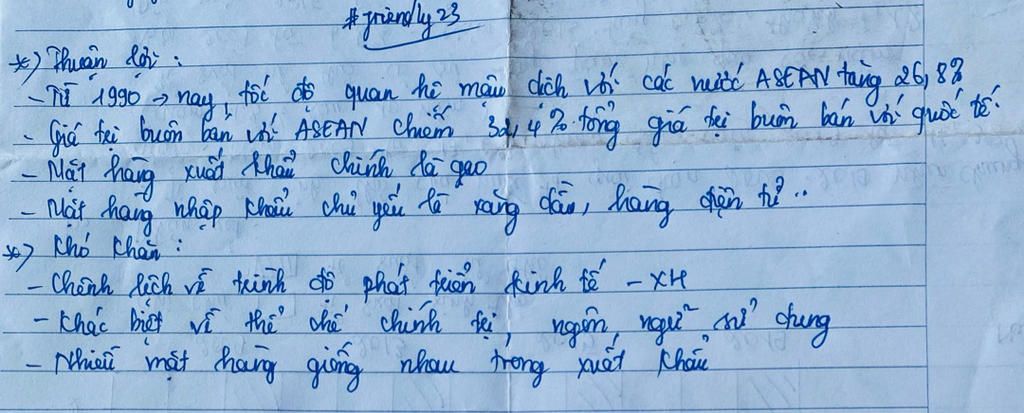 #friendly23
*) Thuận lợi :
- Từ 1990 → nay, tốc độ quan hệ mậu dịch với các nước ASEAN tăng 26,8%
- Giá trị buôn bán với ASEAN chiếm 32,4% tổng giá trị buôn bán với quốc tế.
- Mặt hàng xuất khẩu chính là gạo
- Mặt hàng nhập khẩu chủ yếu là xăng dầu, hàng điện tử ..
*) Khó khăn :
- Chênh lệch về trình độ phát triển kinh tế - XH
- Khác biệt về thể chế chính trị, ngôn ngữ sử dụng
- Nhiều mặt hàng giống nhau trong xuất khẩu